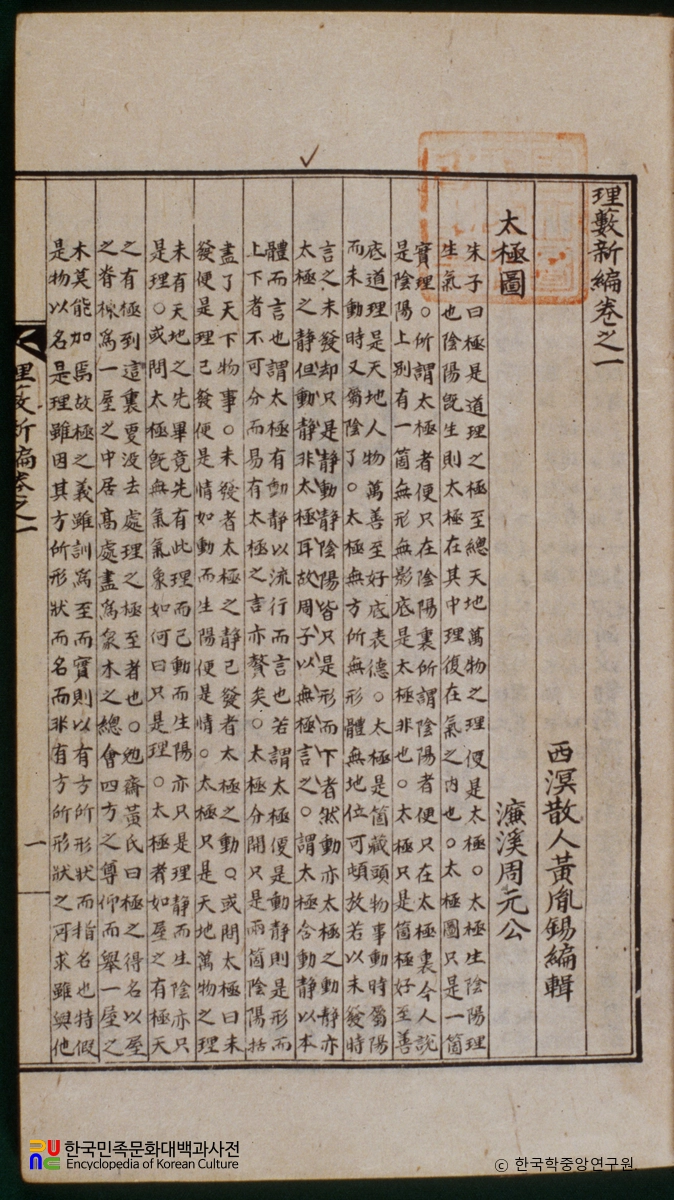 理藪新編卷之一
西溟散人黃胤錫編輯
太極圖 濂溪周元公
朱子曰極是道理之極至總天地萬物之理便是太極。太極生陰陽理
生氣也陰陽旣生則太極在其中理復在氣之內也。太極圖只是一箇
實理。所謂太極者便只在陰陽裏所謂陰陽者便只在太極裏今人說
是陰陽上別有一箇無形無影底是太極非也。太極只是箇極好至善
底道理是天地人物萬善至好底表德。太極是箇藏頭物事動時屬陽
而未動時又屬陰了。太極無方所無形體無地位可頓放若以未發時
言之未發却只是靜動靜陰陽皆只是形而下者然動亦太極之動靜亦
太極之靜但動靜非太極耳故周子以無極言之。謂太極含動靜以本
體而言也謂太極有動靜以流行而言也若謂太極便是動靜則是形而
上下者不可分而易有太極之言亦贅矣。太極分開只是兩箇陰陽括
盡了天下物事。未發者太極之靜已發者太極之動。或問太極曰未
發便是理已發便是情如動而生陽便是情。太極只是天地萬物之理
未有天地之先畢竟先有此理而已動而生陽亦只是理靜而生陰亦只
是理。或問太極旣無氣氣象如何曰只是理。太極者如屋之有極天
之有極到這裏更没去處理之極至者也。勉齋黃氏曰極之得名以屋
之脊棟爲一屋之中居高處盡爲衆木之總會四方之尊仰而擧一屋之
木莫能加焉故極之義雖訓爲至而實則以有方所形狀而指名也特假
是物以名是理雖因其方所形狀而名而非有方所形狀之可求雖與他
理藪新編卷之一
一
한국민족문화대백과사전
Encyclopedia of Korean Culture
© 한국학중앙연구원